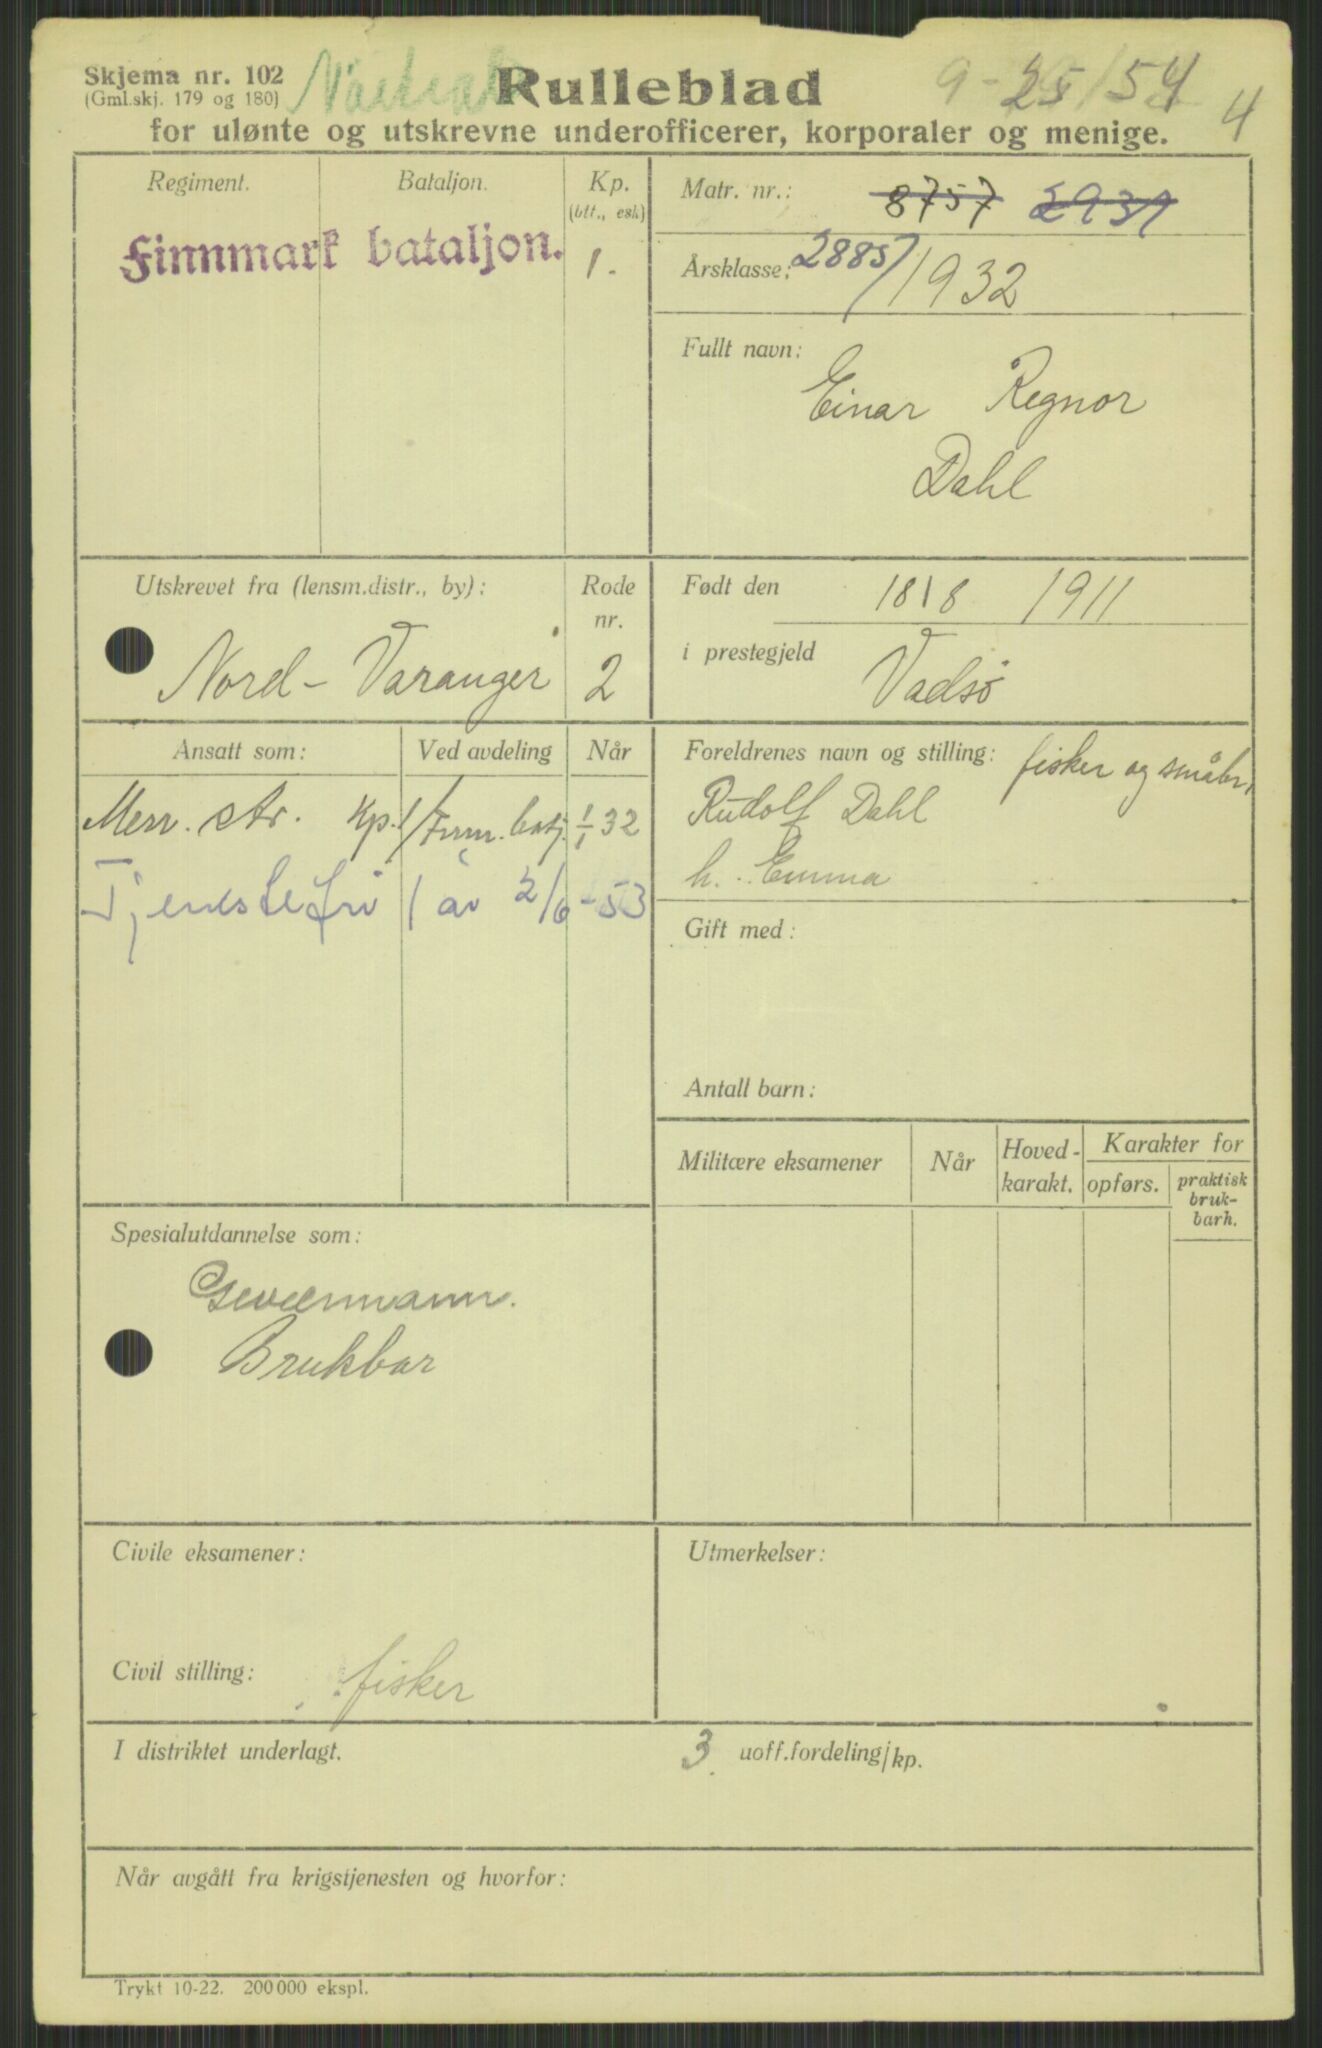 Skjema nr. 102
(Gml.skj. 179 og 180)
Rulleblad
9-25/54
4
for ulønte og utskrevne underofficerer, korporaler og menige.
Regiment. Bataljon. Kp.
(btt., esk)
Finnmark bataljon. 1.
Matr. nr.: 8757 2931
Årsklasse: 2885/1932
Fullt navn:
Einar Regnor
Dahl
Utskrevet fra (lensm.distr., by): Rode
nr.
Nord-Varanger 2
Født den 18/8 1911
i prestegjeld Vadsö
Ansatt som: Ved avdeling Når
Men. str. Kp. 1/Finn. batj. 1/1 32
Tjenestefri 1 av 2/6-53
Foreldrenes navn og stilling: fisker og småbr.
Rudolf Dahl
h. Emma
Gift med:
Antall barn:
Militære eksamener Når Hoved-
karakt. Karakter for
opførs. praktisk
bruk-
barh.
Spesialutdannelse som:
Geværmann.
Brukbar
Civile eksamener:
Utmerkelser:
Civil stilling: fisker
I distriktet underlagt. 3 uoff.fordeling/kp.
Når avgått fra krigstjenesten og hvorfor:
Trykt 10-22. 200 000 ekspl.